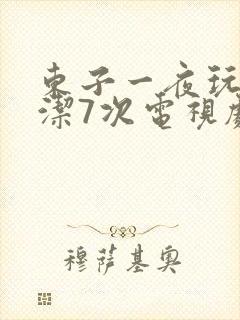 東子一夜玩
潔7次電視
穆薩基奧